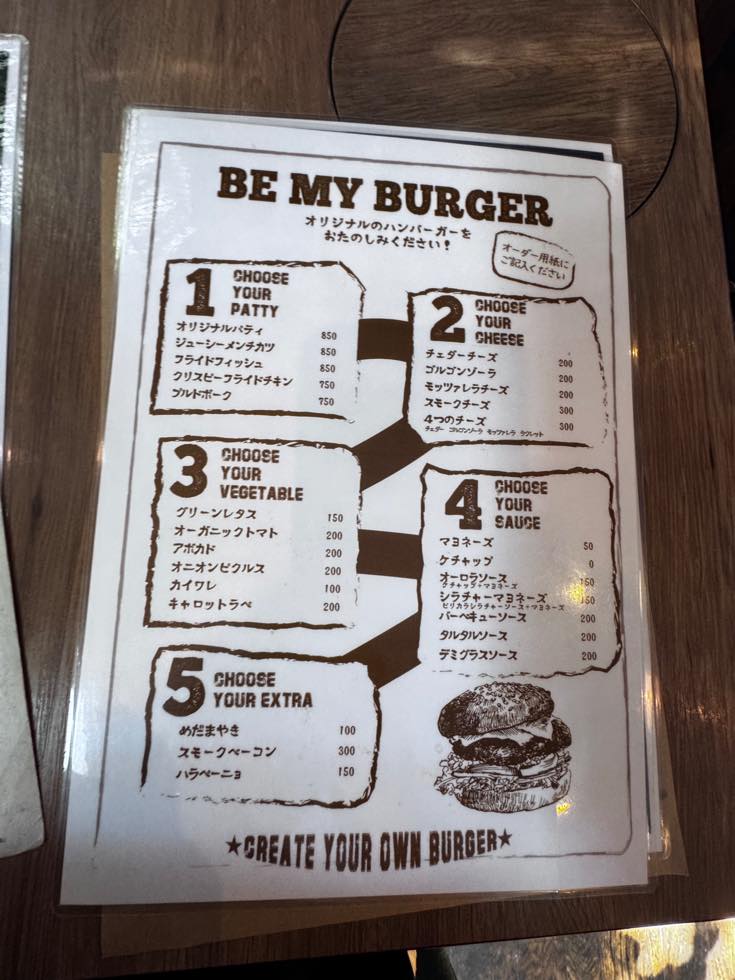 BE MY BURGER
オリジナルのハンバーガーを
おたのしみください!
オーダー用紙に
ご記入ください
1 CHOOSE
YOUR
PATTY
オリジナルパティ 850
ジューシーメンチカツ 850
フライドフィッシュ 850
クリスピーフライドチキン 750
プルドポーク 750
2 CHOOSE
YOUR
CHEESE
チェダーチーズ 200
ゴルゴンゾーラ 200
モッツァレラチーズ 200
スモークチーズ 300
4つのチーズ 300
チェダー ゴルゴンゾーラ モッツァレラ ラクレット
3 CHOOSE
YOUR
VEGETABLE
グリーンレタス 150
オーガニックトマト 200
アボカド 200
オニオンピクルス 200
カイワレ 100
キャロットラペ 200
4 CHOOSE
YOUR
SAUCE
マヨネーズ 50
ケチャップ 0
オーロラソース 150
ケチャップ+マヨネーズ
シラチャーマヨネーズ 150
ピリカラシラチャーソース+マヨネーズ
バーベキューソース 200
タルタルソース 200
デミグラスソース 200
5 CHOOSE
YOUR EXTRA
めだまやき 100
スモークベーコン 300
ハラペーニョ 150
★CREATE YOUR OWN BURGER★